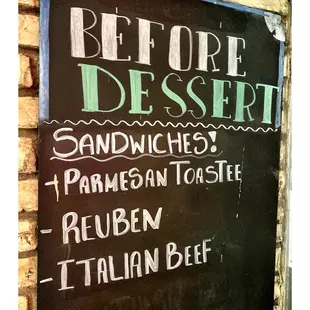 BEFORE
DESSERT
SANDWICHES!
+ PARMESAN TOASTEE
- REUBEN
- ITALIAN BEEF